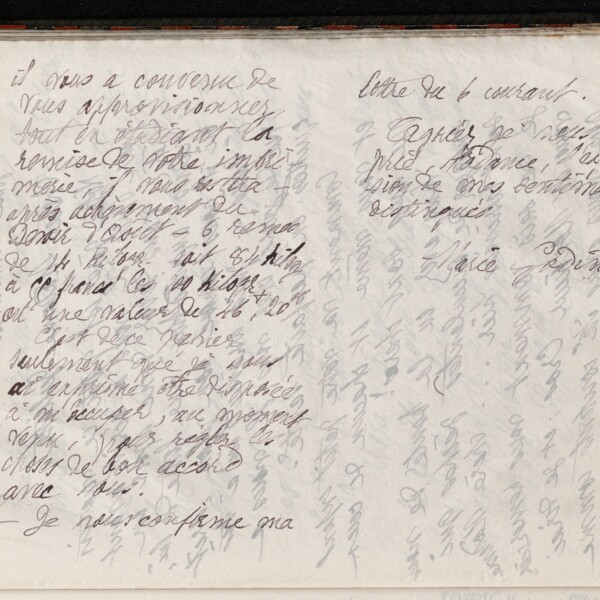 il vous a convenu de
vous approvisionner
tout en étudiant la
remise de votre impri-
merie, il vous restera -
après achèvement du
Devoir d'Août - 6 rames
de 14 kilogr. soit 84 kilog
à 55 francs les 100 kilogr.
ou une valeur de 46 f, 20
C'est de ce papier
seulement que je vous
ai exprimé être disposée
à m'occuper, au moment
venu, pour régler les
choses de bon accord
avec vous.
- Je vous confirme ma
lettre du 6 courant.
Agréez je vous
prie, Madame, l'ex
sion de mes sentime
distingués
Marie Godin